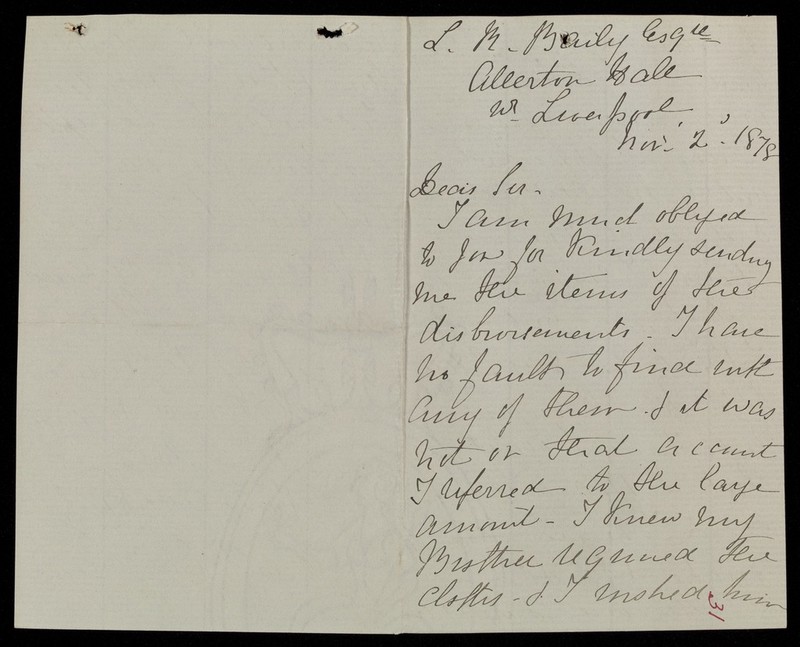 L. R. Baily Esqre
Allerton Hall
Nr Liverpool
Nov. 2. 1878
Dear Sir -
I am much obliged
to you for kindly sending
me the items of the
disbursements - I have
no fault to find with
any of them - & it was
not on that account
I referred to the large
amount - I knew my
Brother required the
clothes - & I wished him
31